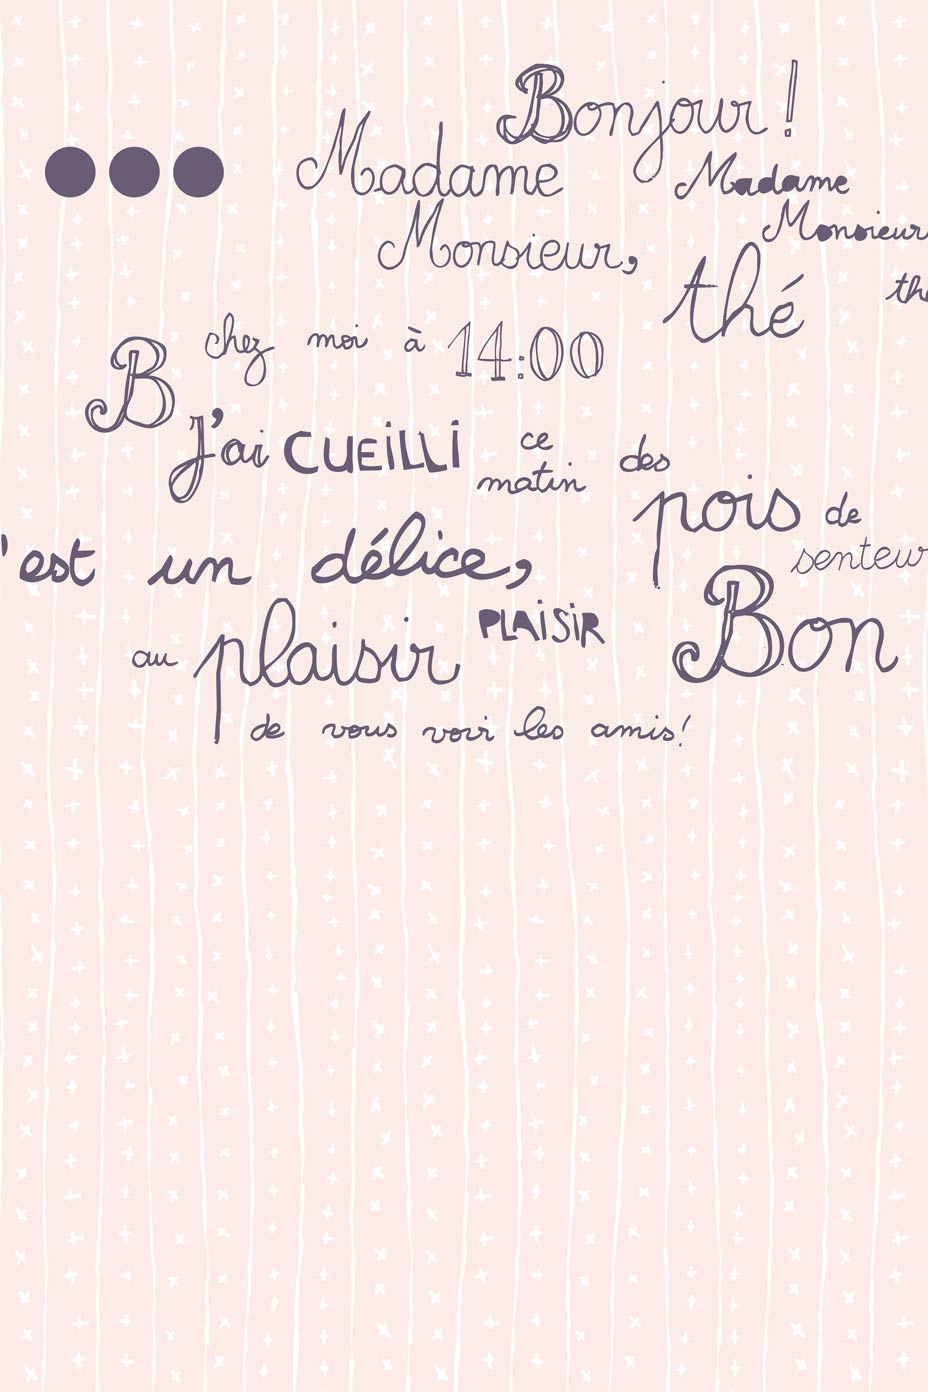 Bonjour!
Madame Madame
Monsieur, Monsieur
thé
chez moi à 14:00
B
J'ai CUEiLLi ce matin des
pois de
senteur
'est un délice,
Bon
au plaisir PLAiSiR
de vous voir les amis!